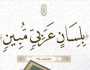 بِلِسَانٍ عَرَبِيٍّ مُبِينٍ